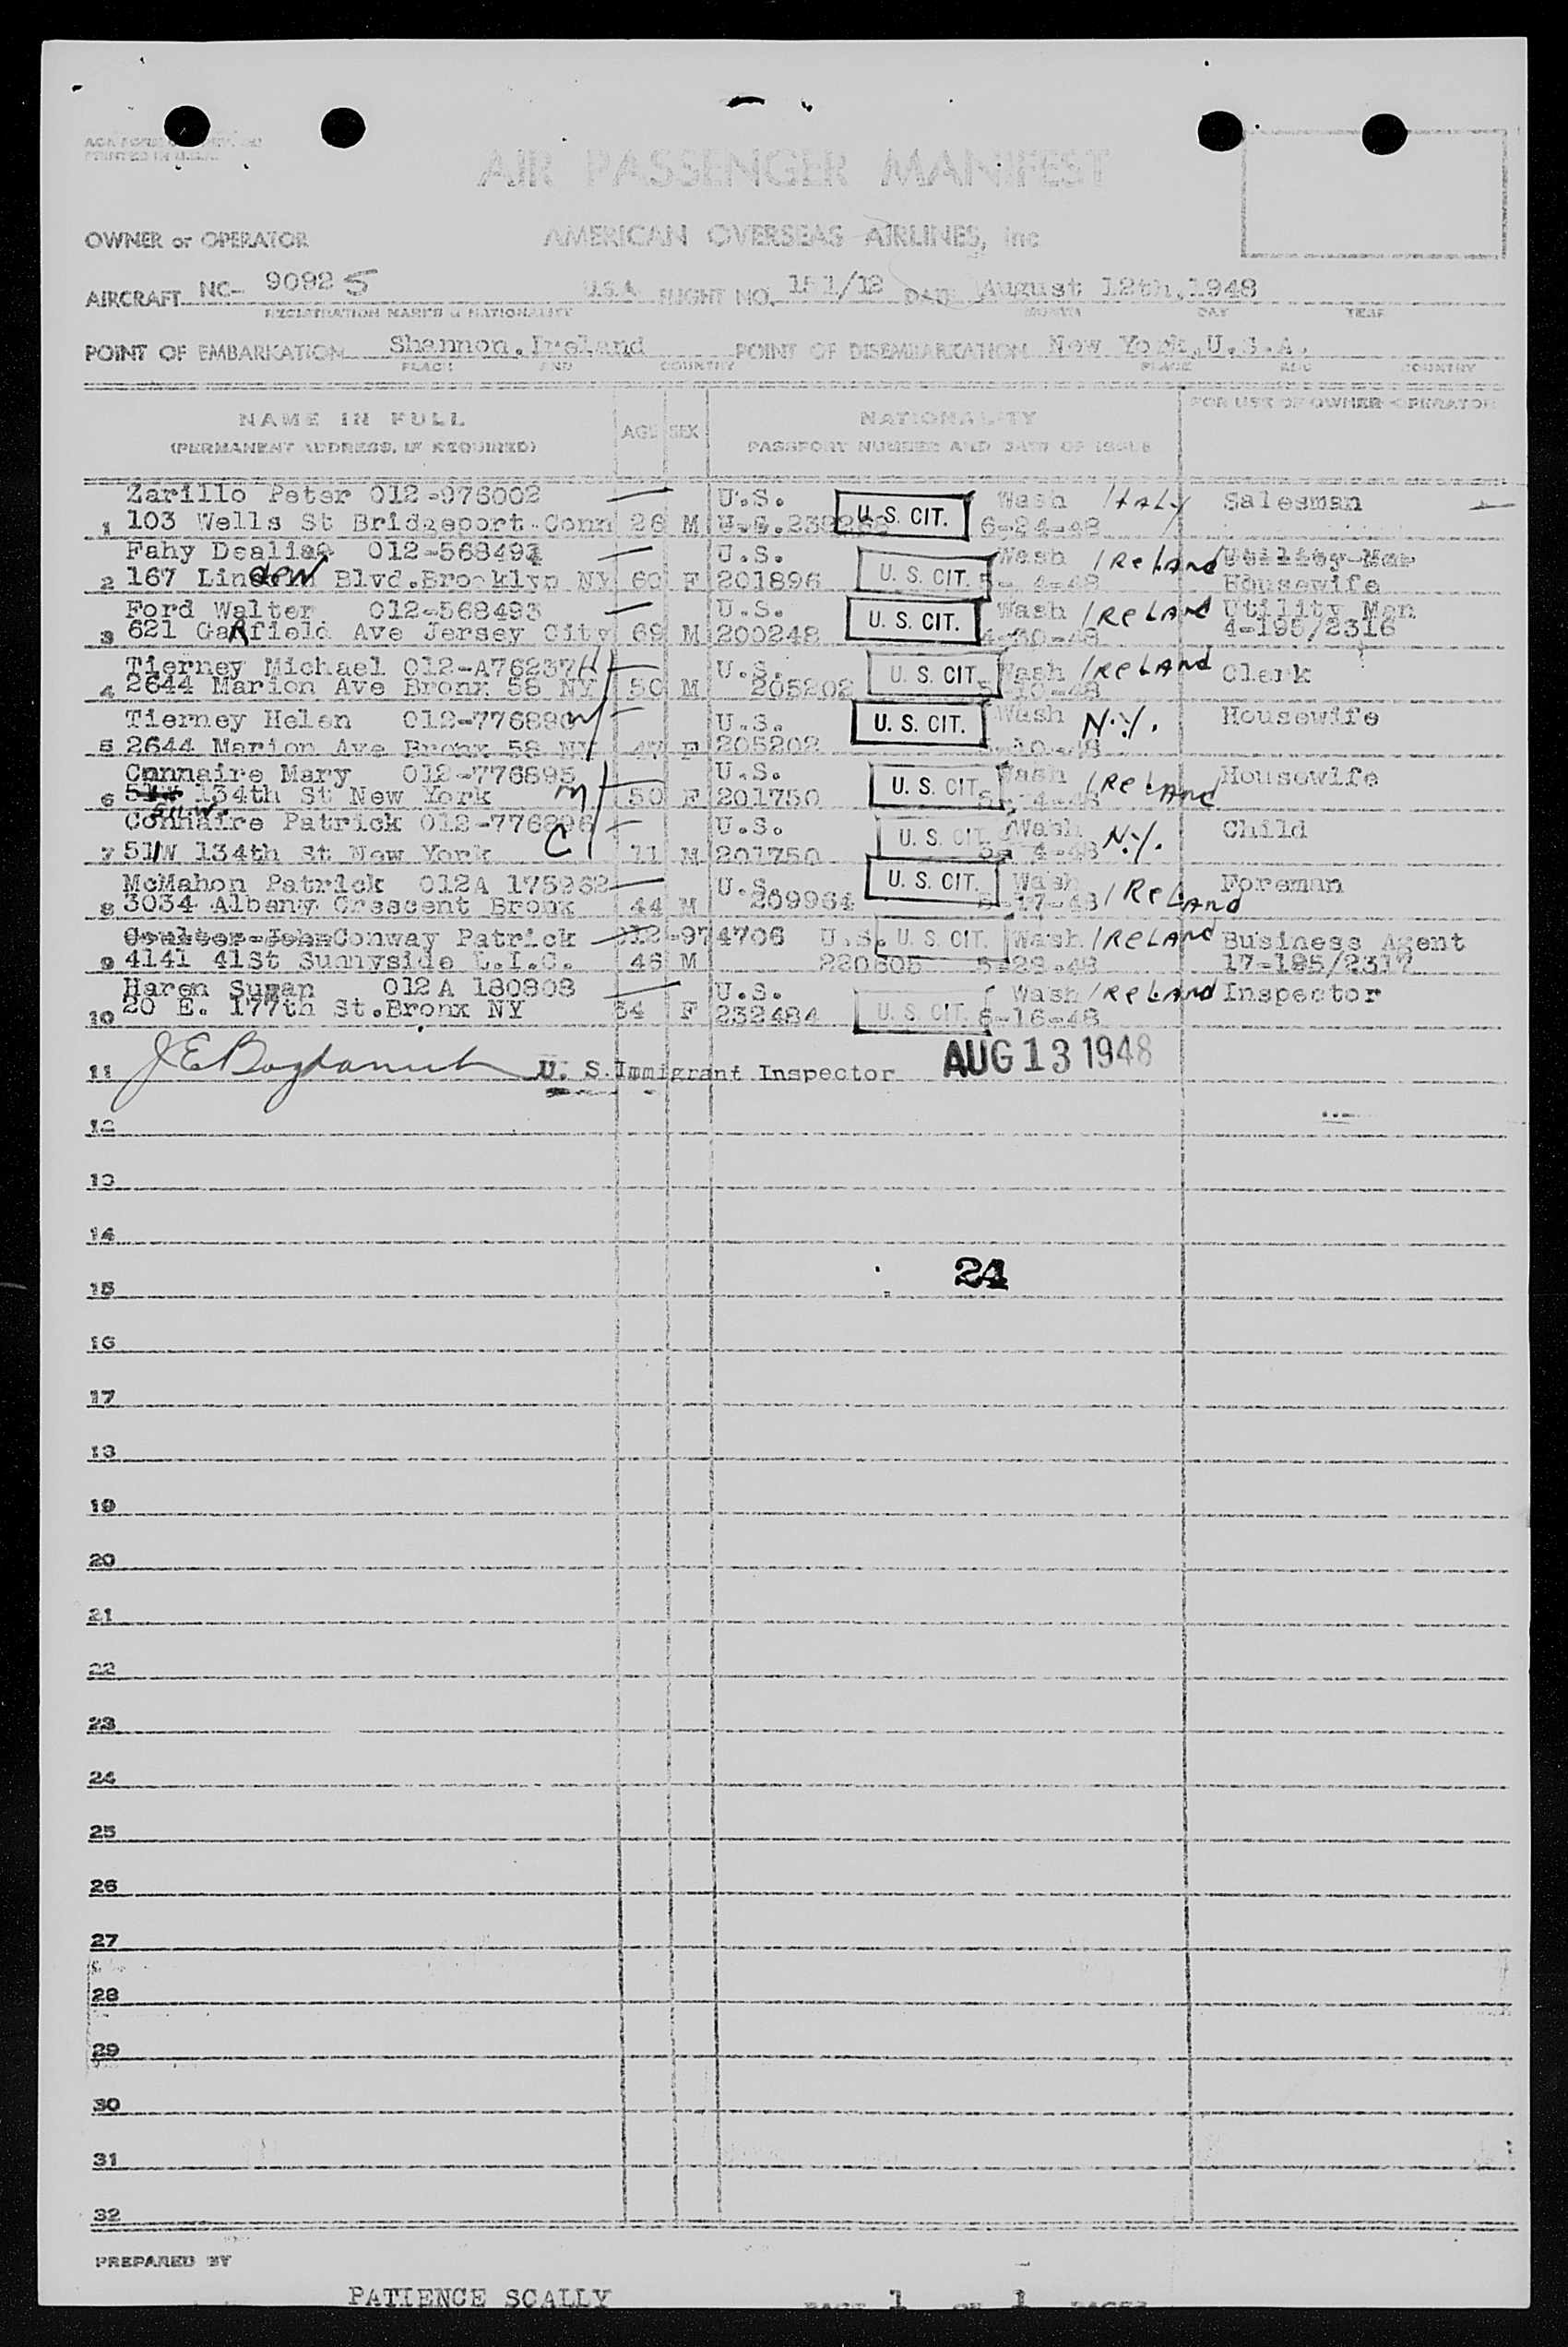 PRINTED IN U.S.A.
AIR PASSENGER MANIFEST
OWNER or OPERATOR AMERICAN OVERSEAS AIRLINES, Inc
AIRCRAFT NC- 90925 U.S.A. FLIGHT NO. 151/12 DATE August 12th,1948
REGISTRATION MARKS & NATIONALITY MONTH DAY YEAR
POINT OF EMBARKATION Shannon,Ireland POINT OF DISEMBARKATION New York,U.S.A.
PLACE AND COUNTRY PLACE AND COUNTRY
NAME IN FULL AGE SEX NATIONALITY FOR USE OF OWNER OPERATOR
(PERMANENT ADDRESS, IF REQUIRED) PASSPORT NUMBER AND DATE OF ISSUE
Zarillo Peter 012-976002 U.S. U. S. CIT. Wash Italy Salesman
1 103 Wells St Bridgeport Conn 26 M U.S. 6-24-48
Fahy 012-568494 U.S. U. S. CIT. Wash IReLAnd Utility Man
2 167 Linden Blvd.Brooklyn NY 60 F 201896 5-4-48 Housewife
Ford Walter 012-568493 U.S. U. S. CIT. Wash IReLAnd Utility Man
3 621 GaRfield Ave Jersey City 69 M 200248 4-30-48 4-195/2316
Tierney Michael 012-A76237 H U.S. U. S. CIT. Wash IReLAnd Clerk
4 2644 Marion Ave Bronx 58 NY 50 M 205202 5-10-48
Tierney Helen 012-776890 W U.S. U. S. CIT. Wash N.Y. Housewife
5 2644 Marion Ave Bronx 58 NY 47 F 205202 5-10-48
Connaire Mary 012-776895 M U.S. U. S. CIT. Wash IReLAnd Housewife
6 134th St New York 50 F 201750 5-4-48
Connaire Patrick 012-776896 U.S. U. S. CIT. Wash N.Y. Child
7 51W 134th St New York C 11 M 201750 5-4-48
McMahon Patrick 012A 175962 U.S. U. S. CIT. Wash IReLAnd Foreman
8 3034 Albany Crescent Bronx 44 M 209964 5-17-48
Coulter John Conway Patrick 012-974706 U.S. U. S. CIT. Wash IReLAnd Business Agent
9 4141 41St Sunnyside L.I.C. 46 M 220605 5-28-48 17-195/2317
Haren Susan 012A 180808 U.S. U. S. CIT. Wash IReLAnd Inspector
10 20 E. 177th St.Bronx NY 54 F 232484 6-16-48
11 U. S.Immigrant Inspector AUG 13 1948
12
13
14
24
15
16
17
18
19
20
21
22
23
24
25
26
27
28
29
30
31
32
PREPARED BY
PATIENCE SCALLY PAGE 1 OF 1 PAGES